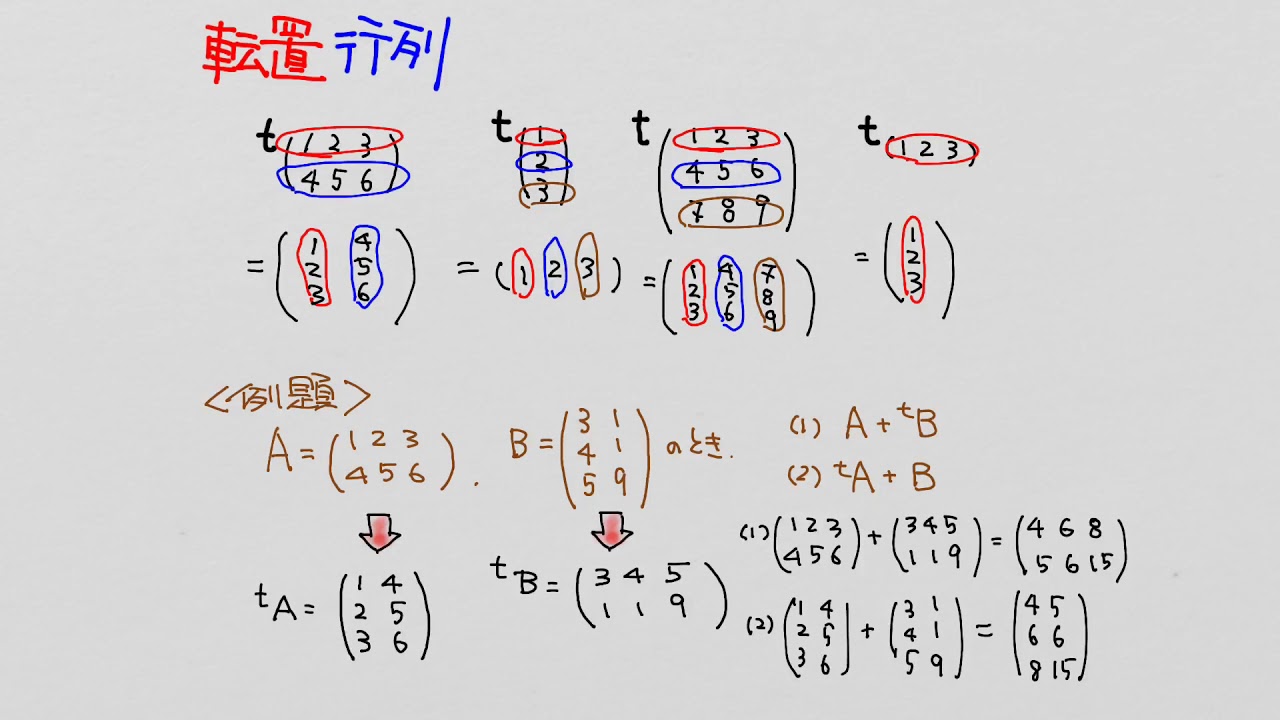 転置行列
t(1 2 3
4 5 6)
= (1 4
2 5
3 6)
t(1
2
3)
= (1 2 3)
t(1 2 3
4 5 6
7 8 9)
= (1 4 7
2 5 8
3 6 9)
t(1 2 3)
= (1
2
3)
<例題>
A = (1 2 3
4 5 6).
B = (3 1
4 1
5 9) のとき.
(1) A + tB
(2) tA + B
tA = (1 4
2 5
3 6)
tB = (3 4 5
1 1 9)
(1) (1 2 3
4 5 6) + (3 4 5
1 1 9) = (4 6 8
5 6 15)
(2) (1 4
2 5
3 6) + (3 1
4 1
5 9) = (4 5
6 6
8 15)